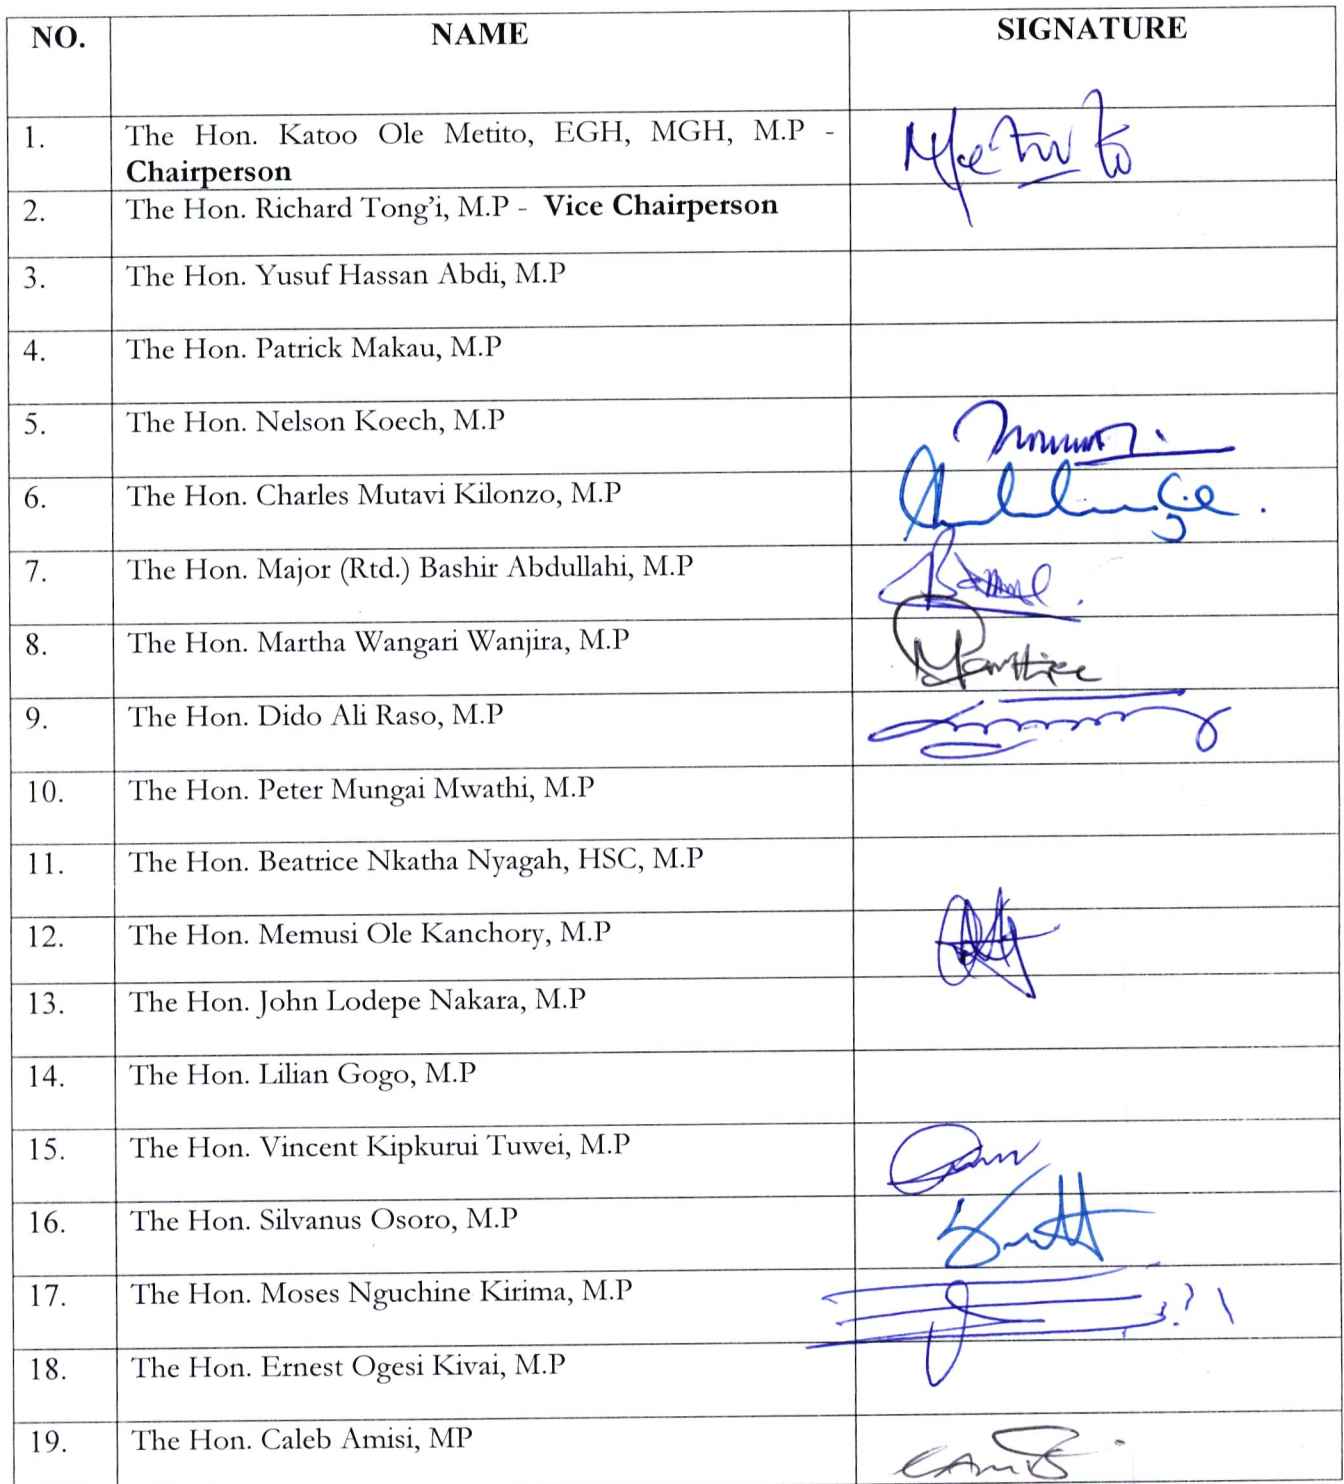 NO. NAME SIGNATURE
1. The Hon. Katoo Ole Metito, EGH, MGH, M.P -
Chairperson
2. The Hon. Richard Tong'i, M.P - Vice Chairperson
3. The Hon. Yusuf Hassan Abdi, M.P
4. The Hon. Patrick Makau, M.P
5. The Hon. Nelson Koech, M.P
6. The Hon. Charles Mutavi Kilonzo, M.P
7. The Hon. Major (Rtd.) Bashir Abdullahi, M.P
8. The Hon. Martha Wangari Wanjira, M.P
9. The Hon. Dido Ali Raso, M.P
10. The Hon. Peter Mungai Mwathi, M.P
11. The Hon. Beatrice Nkatha Nyagah, HSC, M.P
12. The Hon. Memusi Ole Kanchory, M.P
13. The Hon. John Lodepe Nakara, M.P
14. The Hon. Lilian Gogo, M.P
15. The Hon. Vincent Kipkurui Tuwei, M.P
16. The Hon. Silvanus Osoro, M.P
17. The Hon. Moses Nguchine Kirima, M.P
18. The Hon. Ernest Ogesi Kivai, M.P
19. The Hon. Caleb Amisi, MP